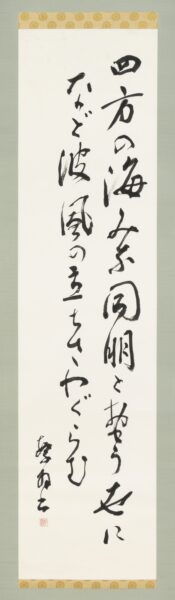 四方の海みな同朋とおもう世に
など波風の立ちさわぐらむ